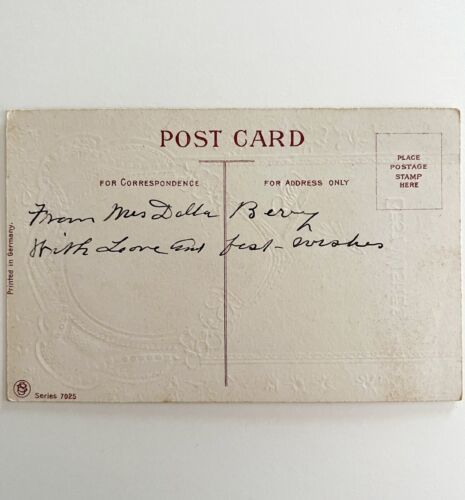 POST CARD
PLACE
POSTAGE
STAMP
HERE
FOR CORRESPONDENCE
FOR ADDRESS ONLY
From Mrs Della Berry
With Love and best-wishes
Printed in Germany.
Series 7025